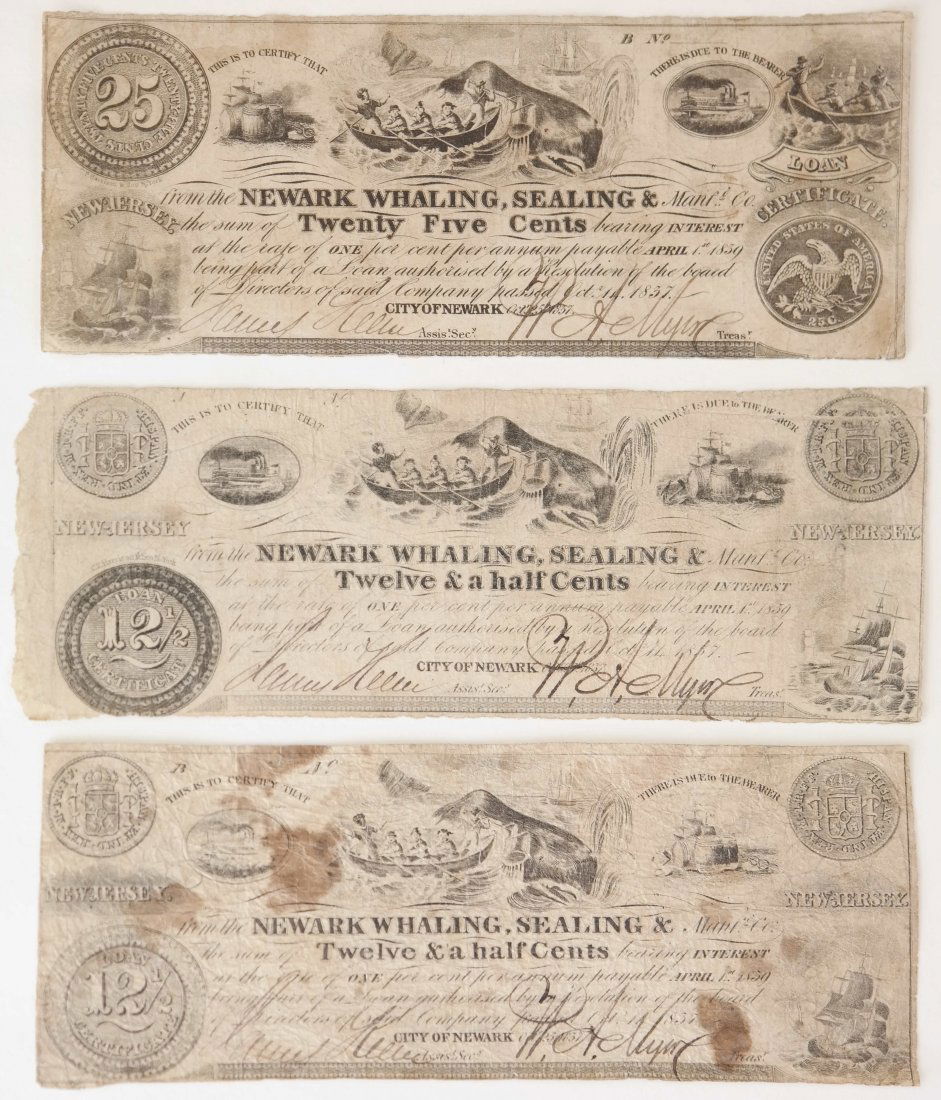 B Nº
TWENTY FIVE CENTS TWENTY FIVE CENTS
25
THIS IS TO CERTIFY THAT
THERE IS DUE TO THE BEARER
LOAN
CERTIFICATE.
NEW-JERSEY.
from the NEWARK WHALING, SEALING & Manf.g Co.
the sum of Twenty Five Cents bearing INTEREST
at the rate of ONE per cent per annum payable APRIL 1st 1839
being part of a Loan authorised by a Resolution of the board
of Directors of said Company passed Oct. 14, 1837.
CITY OF NEWARK
Assis.t Sec.y
Treas.r
UNITED STATES OF AMERICA
25 C.
Nº
THIS IS TO CERTIFY THAT
THERE IS DUE to THE BEARER
NEW-JERSEY
NEW-JERSEY.
from the NEWARK WHALING, SEALING & Manf.g Co.
the sum of Twelve & a half Cents bearing INTEREST
at the rate of ONE per cent per annum payable APRIL 1st 1839
being part of a Loan authorised by a Resolution of the board
of Directors of said Company passed Oct. 14, 1837.
LOAN
12 1/2
CERTIFICATE
CITY OF NEWARK
Assis.t Sec.y
Treas.r
B Nº
THIS IS TO CERTIFY THAT
THERE IS DUE to THE BEARER
NEW-JERSEY.
NEW-JERSEY.
from the NEWARK WHALING, SEALING & Manf.g Co.
the sum of Twelve & a half Cents bearing INTEREST
at the rate of ONE per cent per annum payable APRIL 1st 1839
being part of a Loan authorised by a Resolution of the board
of Directors of said Company passed Oct. 14, 1837.
LOAN
12 1/2
CERTIFICATE
CITY OF NEWARK
Assis.t Sec.y
Treas.r